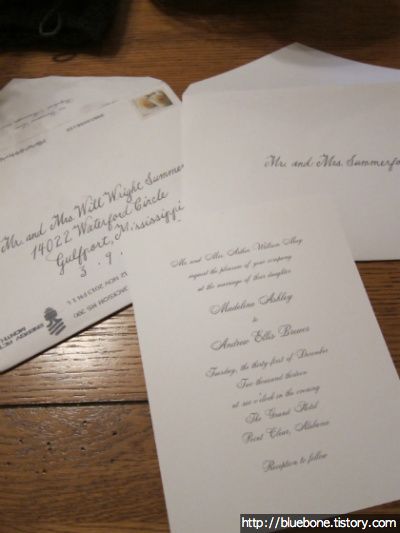 Mr. and Mrs. Will Wright Summer
14022 Waterford Circle
Gulfport, Mississippi
3 . 9
12 NOV 2013 PM 1 L
JACKSON MS 390
Mr. and Mrs. Summerfo
Mr. and Mrs. Arthur William May
request the pleasure of your company
at the marriage of their daughter
Madeline Ashley
to
Andrew Ellis Brewes
Tuesday, the thirty-first of December
Two thousand thirteen
at six o'clock in the evening
The Grand Hotel
Point Clear, Alabama
Reception to follow
http://bluebone.tistory.com